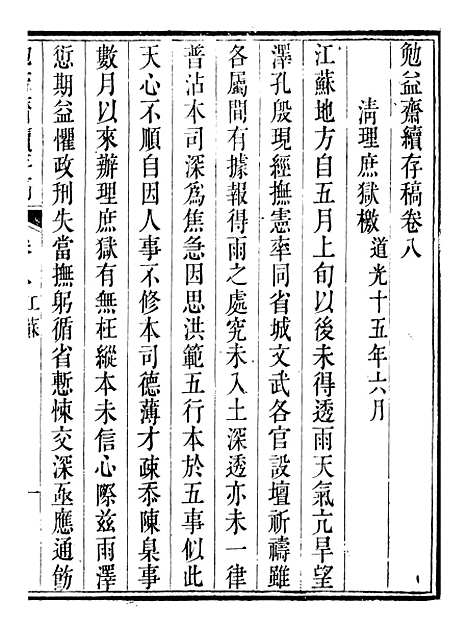 勉益齋續存稿卷八
清理庶獄檄道光十五年六月
江蘇地方自五月上旬以後未得透雨天氣亢旱望
澤孔殷現經撫憲率同省城文武各官設壇祈禱雖
各屬間有據報得雨之處究未入土深透亦未一律
普沾本司深爲焦急因思洪範五行本於五事似此
天心不順自因人事不修本司德薄才疎忝陳臬事
數月以來辦理庶獄有無枉縱本未信心際兹雨澤
愆期益懼政刑失當撫躬循省慙悚交深亟應通飭
卷八江蘇
一